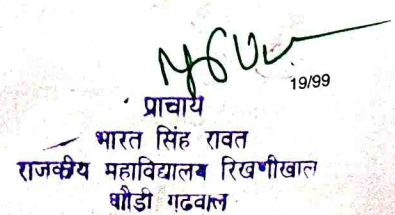 19/99
प्राचार्य
भारत सिंह रावत
राजकीय महाविद्यालय रिखणीखाल
पौडी गढवाल